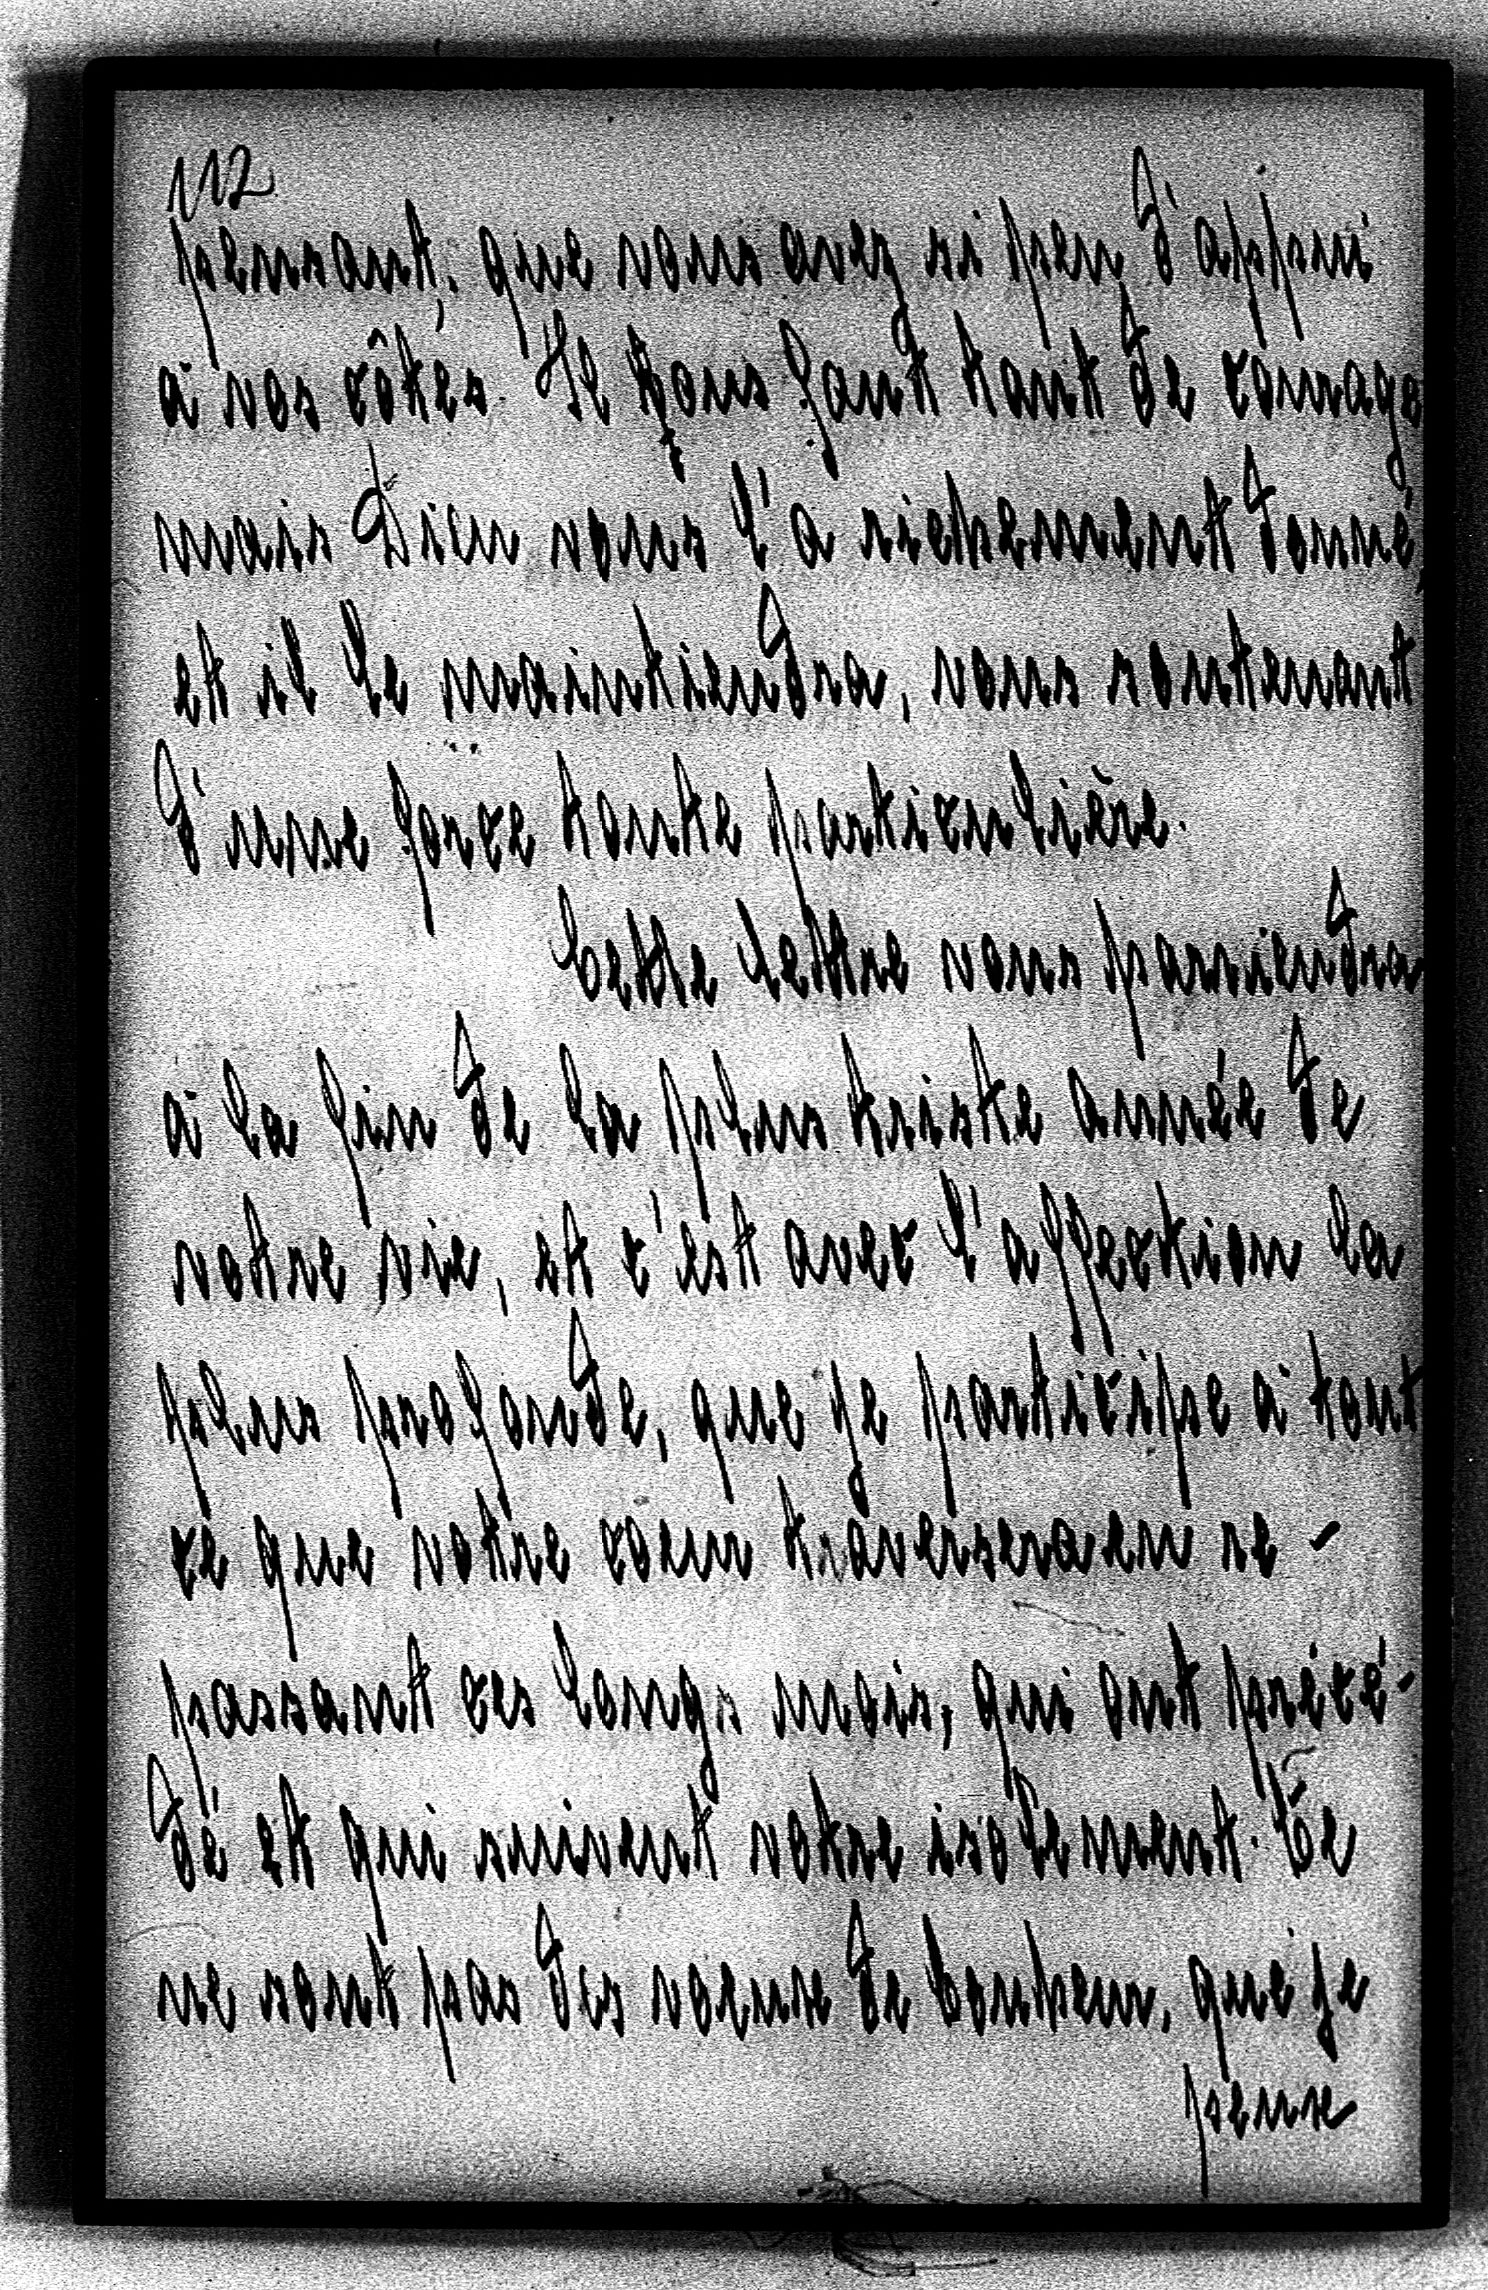 112
pensant, que vous avez si peu d'appui
à vos côtés. Il vous faut tant de courage
mais Dieu vous l'a richement donné,
et il le maintiendra, vous soutenant
d'une force toute particulière.
Cette lettre vous parviendra
à la fin de la plus triste année de
votre vie, et c'est avec l'affection la
plus profonde, que je participe à tout
ce que votre coeur traversera en re-
passant ces longs mois, qui ont précé-
dé et qui suivent votre isolement. Ce
ne sont pas des voeux de bonheur, que je
pense